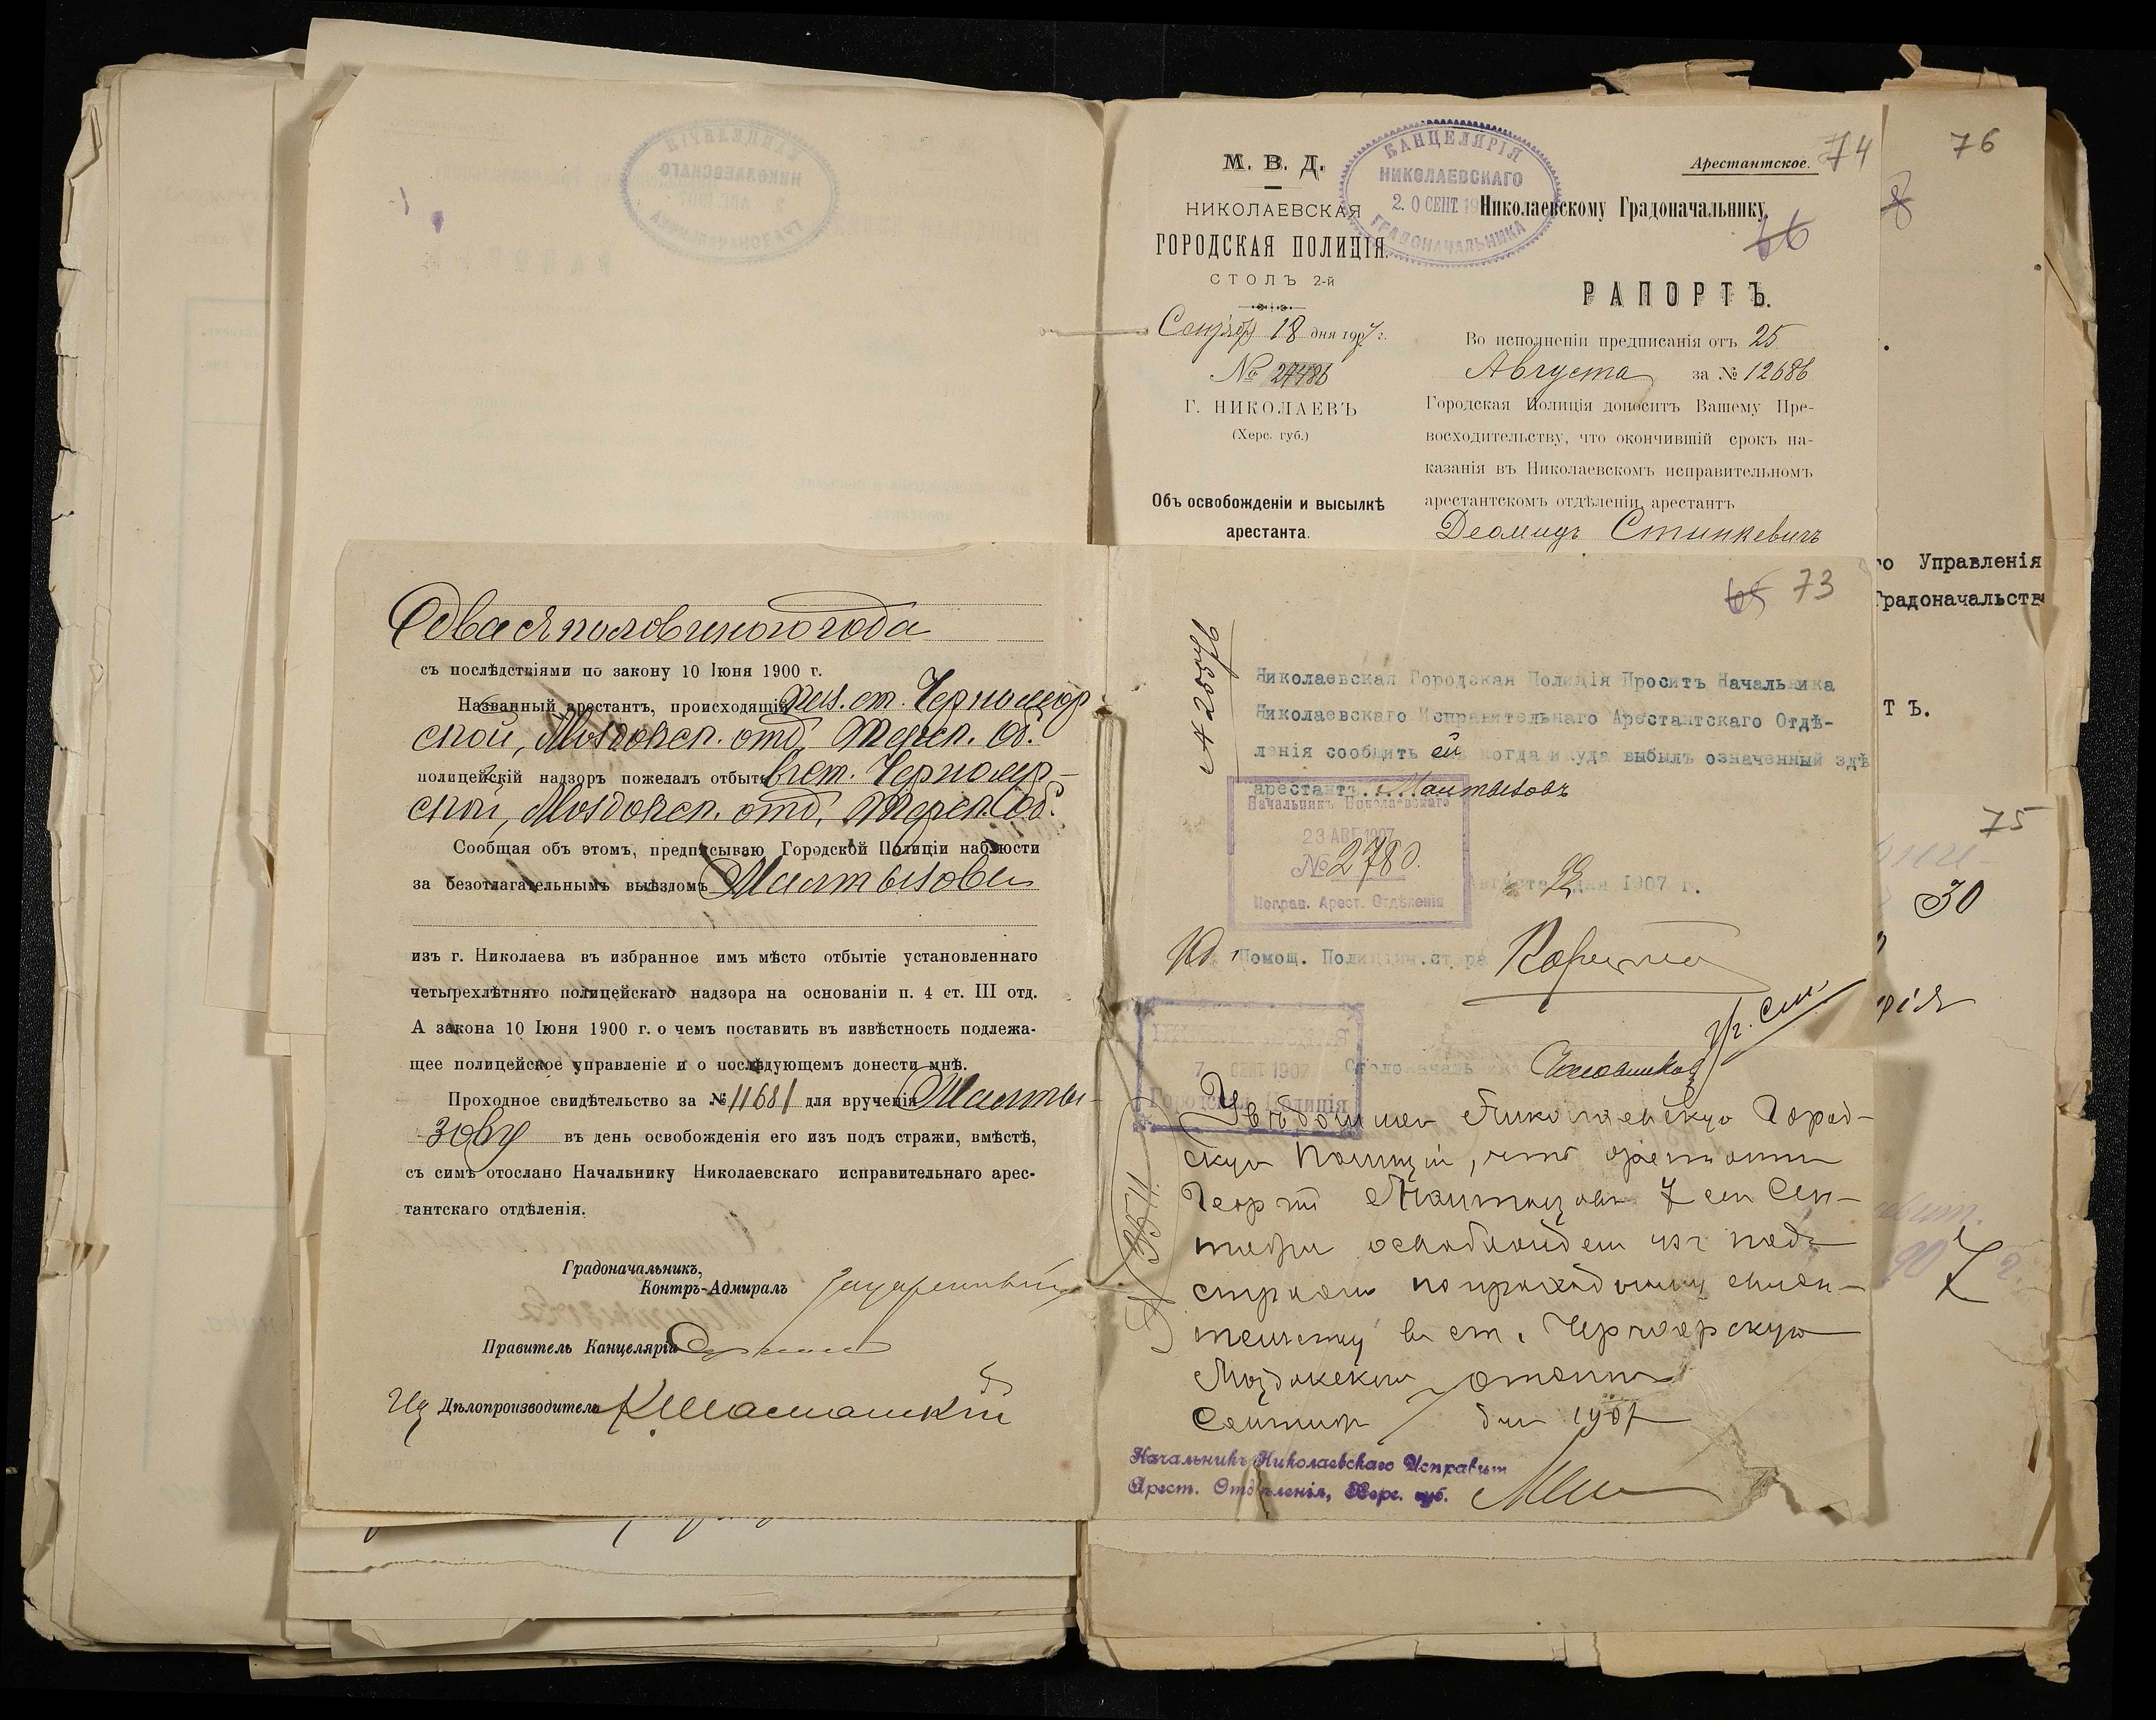 два съ половиною года
съ послѣдствіями по закону 10 Іюня 1900 г.
Названный арестантъ, происходящій каз. ст. Чернояр
ской, Моздокск. отд. Терск. об.
полицейскій надзоръ пожелалъ отбыть въ ст. Черояр-
ской, Моздокск. отд. Терск. об.
Сообщая объ этомъ, предписываю Городской Полиціи наблюсти
за безотлагательнымъ выѣздомъ Мамтызова
изъ г. Николаева въ избранное имъ мѣсто отбытіе установленнаго
четырехлѣтняго полицейскаго надзора на основаніи п. 4 ст. III отд.
А закона 10 Іюня 1900 г. о чемъ поставить въ извѣстность подлежа-
щее полицейское управленіе и о послѣдующемъ донести мнѣ.
Проходное свидѣтельство за № 11681 для врученія Мамты-
зову въ день освобожденія его изъ подъ стражи, вмѣстѣ,
съ симъ отослано Начальнику Николаевскаго исправительнаго арес-
тантскаго отдѣленія.
Градоначальникъ,
Контръ-Адмиралъ
Правитель Канцеляріи
Дѣлопроизводитель
М. В. Д.
НИКОЛАЕВСКАЯ
ГОРОДСКАЯ ПОЛИЦІЯ.
СТОЛЪ 2-й
Сентября 18 дня 1907 г.
№ 27486
Г. НИКОЛАЕВЪ
(Херс. губ.)
Объ освобожденіи и высылкѣ
арестанта.
КАНЦЕЛЯРІЯ
НИКОЛАЕВСКАГО
20 СЕНТ. 19
ГРАДОНАЧАЛЬНИКА
Арестантское.
74
Николаевскому Градоначальнику.
66
РАПОРТЪ.
Во исполненіи предписанія отъ 25
Августа за № 12686
Городская Полиція доноситъ Вашему Пре-
восходительству, что окончившій срокъ на-
казанія въ Николаевскомъ исправительномъ
арестантскомъ отдѣленіи арестантъ
Деомидъ Стинкевичъ
65 73
Николаевская Городская Полиція Проситъ Начальника
Николаевскаго Исправительнаго Арестантскаго Отдѣ-
ленія сообщить ей когда и куда выбылъ означенный здѣ
арестантъ Мамтызовъ
Начальникъ Николаевскаго
23 АВГ 1907
№ 2780.
Исправ. Арест. Отдѣленія
Августа 22 дня 1907 г.
Помощ. Полиційм.стера
7 СЕНТ 1907
Городская Полиція
Столоначальникъ
Увѣдомляю Николаевскую Город-
скую Полицію, что арестантъ
Георгій Мамтызовъ 7 сего Сен-
тября освобожденъ изъ подъ
стражи по проходному свидѣ-
тельству въ ст. Черноярскую
Моздокскаго отдѣла
Сентября 7 дня 1907
Начальникъ Николаевскаго Исправит
Арест. Отдѣленія, Херс. губ.
76
го Управленія
Градоначальства
Т Ъ.
75
30